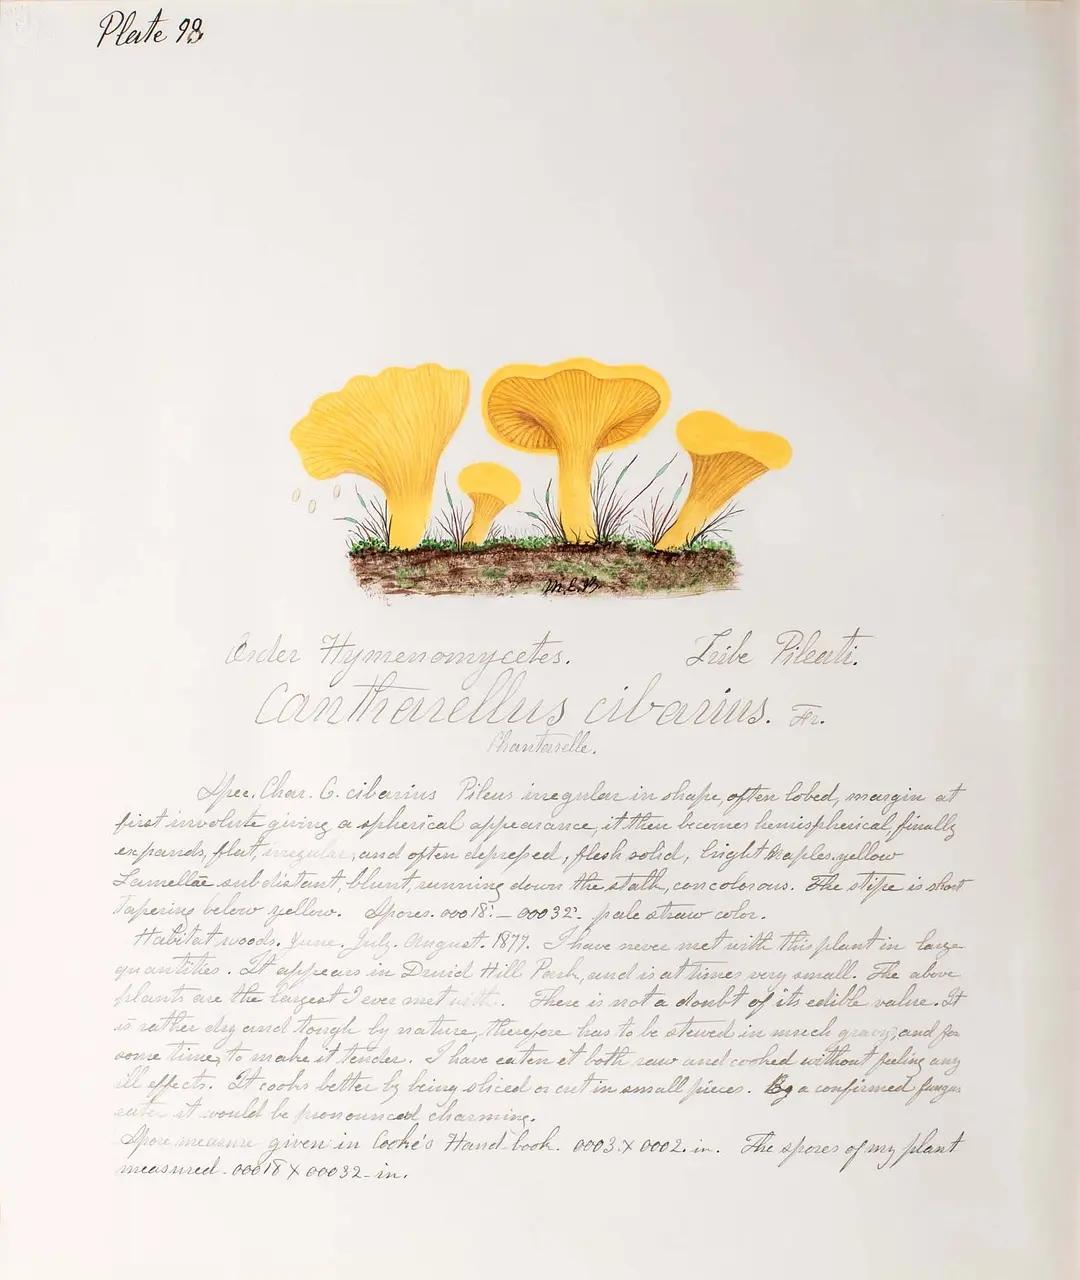 Plate 98
M.E.B.
Order Hymenomycetes. Tribe Pileati.
Cantharellus cibarius. Fr.
Chantarelle.
Spec. Char. C. cibarius Pileus irregular in shape, often lobed, margin at
first involute giving a spherical appearance, it then becomes hemispherical, finally
expands, flat, irregular, and often depressed, flesh solid, bright Naples yellow
Lamellæ subdistant, blunt, running down the stalk, concolorous. The stipe is short
tapering below yellow. Spores .00018.—00032. pale straw color.
Habitat, woods. June. July. August. 1877. I have never met with this plant in large
quantities. It appears in Druid Hill Park, and is at times very small. The above
plants are the largest I ever met with. There is not a doubt of its edible value. It
is rather dry and tough by nature, therefore has to be stewed in much gravy, and for
some time, to make it tender. I have eaten it both raw and cooked without feeling any
ill effects. It cooks better by being sliced or cut in small pieces. By a confirmed fungus
eater it would be pronounced charming.
Spore measure given in Cooke's Hand book. .0003. X .0002. in. The spores of my plant
measured .00018 X 00032 in.